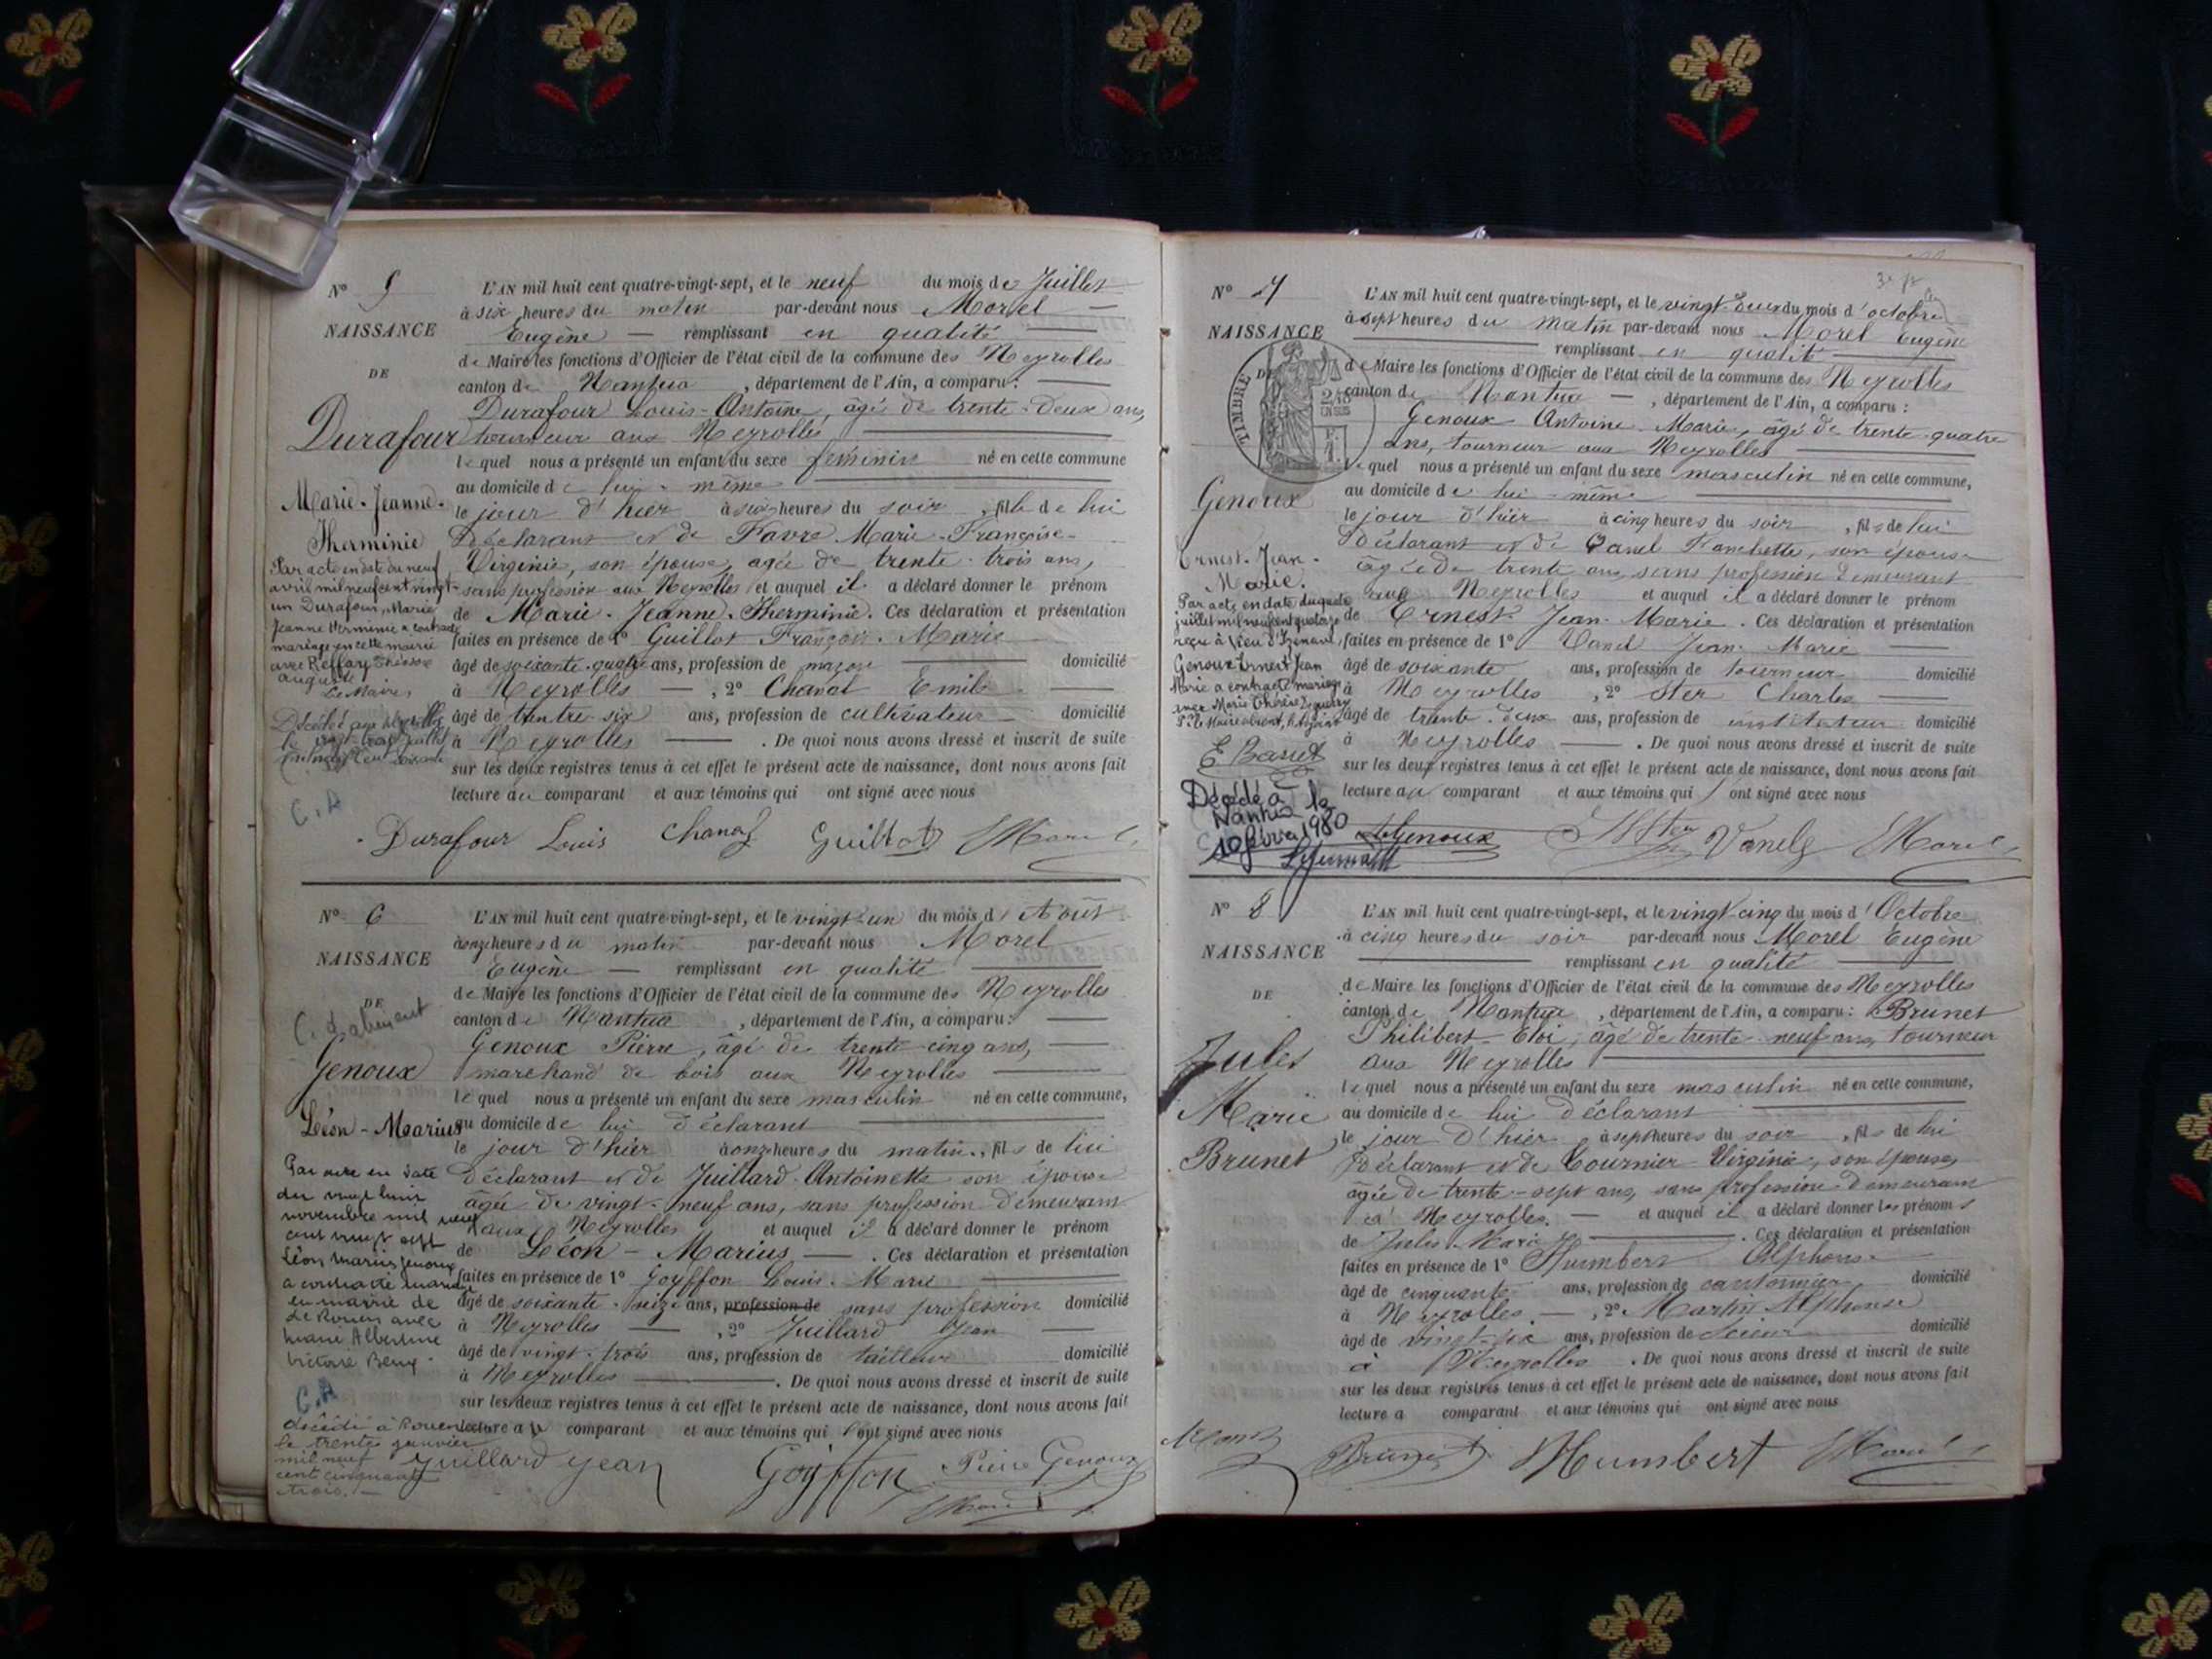 N° 5
NAISSANCE
DE
Durafour
Marie-Jeanne-
Therminie
Par acte en date du neuf
avril mil neuf cent vingt-
un Durafour, Marie
Jeanne Herminie a contracté
mariage en cette mairie
avec Reffay
auguste
Le Maire,
Décédée aux Neyrolles
le vingt-trois juillet
mil neuf cent soixante
C.A
L'AN mil huit cent quatre-vingt-sept, et le neuf du mois de Juillet
à six heures du matin par-devant nous Morel
Eugène remplissant en qualité
de Maire les fonctions d'Officier de l'état civil de la commune des Neyrolles
canton de Nantua, département de l'Ain, a comparu:
Durafour Louis-Antoine, âgé de trente-deux ans,
tourneur aux Neyrolles
lequel nous a présenté un enfant du sexe féminin né en cette commune
au domicile de lui-même
le jour d'hier à six heures du soir, fille de lui
déclarant et de Favre Marie-Françoise-
Virginie, son épouse, agée de trente-trois ans,
sans profession aux Neyrolles et auquel il a déclaré donner le prénom
de Marie-Jeanne-Therminie. Ces déclaration et présentation
faites en présence de 1° Guillot François-Marie
âgé de soixante-quatre ans, profession de maçon domicilié
à Neyrolles, 2° Chanal Emile
âgé de trentre-six ans, profession de cultivateur domicilié
à Neyrolles. De quoi nous avons dressé et inscrit de suite
sur les deux registres tenus à cet effet le présent acte de naissance, dont nous avons fait
lecture au comparant et aux témoins qui ont signé avec nous
Durafour Louis Chanal Guillot Morel
N° 6
NAISSANCE
DE
Genoux
Léon-Marius
Par acte en date
du vingt huit
novembre mil neuf
cent vingt sept
Léon Marius Genoux
a contracté mariage
en mairie de
de Rouen avec
Marie Albertine
Victorie
C.A
décédé à Rouen
le trente janvier
mil neuf
cent cinquante
trois.
L'AN mil huit cent quatre-vingt-sept, et le vingt-un du mois d'Août
à onze heures du matin par-devant nous Morel
Eugène remplissant en qualité
de Maire les fonctions d'Officier de l'état civil de la commune des Neyrolles
canton de Nantua, département de l'Ain, a comparu:
Genoux Pierre, âgé de trente-cinq ans,
marchand de bois aux Neyrolles
lequel nous a présenté un enfant du sexe masculin né en cette commune,
au domicile de lui déclarant
le jour d'hier à onze heures du matin, fils de lui
déclarant et de Juillard Antoinette son épouse
âgée de vingt-neuf ans, sans profession demeurant
aux Neyrolles et auquel il a déclaré donner le prénom
de Léon-Marius. Ces déclaration et présentation
faites en présence de 1° Goyffon Louis-Marie
âgé de soixante-seize ans, profession de sans profession domicilié
à Neyrolles, 2° Juillard Jean
âgé de vingt-trois ans, profession de tailleur domicilié
à Neyrolles. De quoi nous avons dressé et inscrit de suite
sur les deux registres tenus à cet effet le présent acte de naissance, dont nous avons fait
lecture au comparant et aux témoins qui ont signé avec nous
Juillard Jean Goyffon Pierre Genoux
Morel
N° 7
NAISSANCE
DE
TIMBRE
Genoux
Ernest-Jean-
Marie.
Par acte en date du quatre
juillet mil neuf cent quatorze
reçu à Vieu d'Izenave,
Genoux Ernest Jean
Marie a contracté mariage
avec Marie Thérèse
E Baret
Décédé à
Nantua le
10 février 1980
L'AN mil huit cent quatre-vingt-sept, et le vingt-deux du mois d'octobre
à sept heures du matin par-devant nous Morel Eugène
remplissant en qualité
de Maire les fonctions d'Officier de l'état civil de la commune des Neyrolles
canton de Nantua, département de l'Ain, a comparu:
Genoux Antoine-Marie, âgé de trente-quatre
ans, tourneur aux Neyrolles
lequel nous a présenté un enfant du sexe masculin né en cette commune,
au domicile de lui-même
le jour d'hier à cinq heures du soir, fils de lui
déclarant et de Vanel Fanchette, son épouse
âgée de trente ans, sans profession demeurant
aux Neyrolles et auquel il a déclaré donner le prénom
de Ernest Jean-Marie. Ces déclaration et présentation
faites en présence de 1° Vanel Jean-Marie
âgé de soixante ans, profession de tourneur domicilié
à Neyrolles, 2° Ster Charles
âgé de trente-deux ans, profession de instituteur domicilié
à Neyrolles. De quoi nous avons dressé et inscrit de suite
sur les deux registres tenus à cet effet le présent acte de naissance, dont nous avons fait
lecture au comparant et aux témoins qui ont signé avec nous
Genoux Ster Vanel Morel
N° 8
NAISSANCE
DE
Jules
Marie
Brunet
L'AN mil huit cent quatre-vingt-sept, et le vingt-cinq du mois d'Octobre
à cinq heures du soir par-devant nous Morel Eugène
remplissant en qualité
de Maire les fonctions d'Officier de l'état civil de la commune des Neyrolles
canton de Nantua, département de l'Ain, a comparu: Brunet
Philibert-Eloi, âgé de trente-neuf ans, tourneur
aux Neyrolles
lequel nous a présenté un enfant du sexe masculin né en cette commune,
au domicile de lui déclarant
le jour d'hier à sept heures du soir, fils de lui
déclarant et de Tournier Virginie, son épouse,
âgée de trente-sept ans, sans profession demeurant
à Neyrolles. et auquel il a déclaré donner les prénoms
de Jules-Marie. Ces déclaration et présentation
faites en présence de 1° Humbert Alphonse
âgé de cinquante ans, profession de cantonnier domicilié
à Neyrolles, 2° Martin Alphonse
âgé de vingt-six ans, profession de Scieur domicilié
à Neyrolles. De quoi nous avons dressé et inscrit de suite
sur les deux registres tenus à cet effet le présent acte de naissance, dont nous avons fait
lecture a comparant et aux témoins qui ont signé avec nous
Brunet Humbert Morel